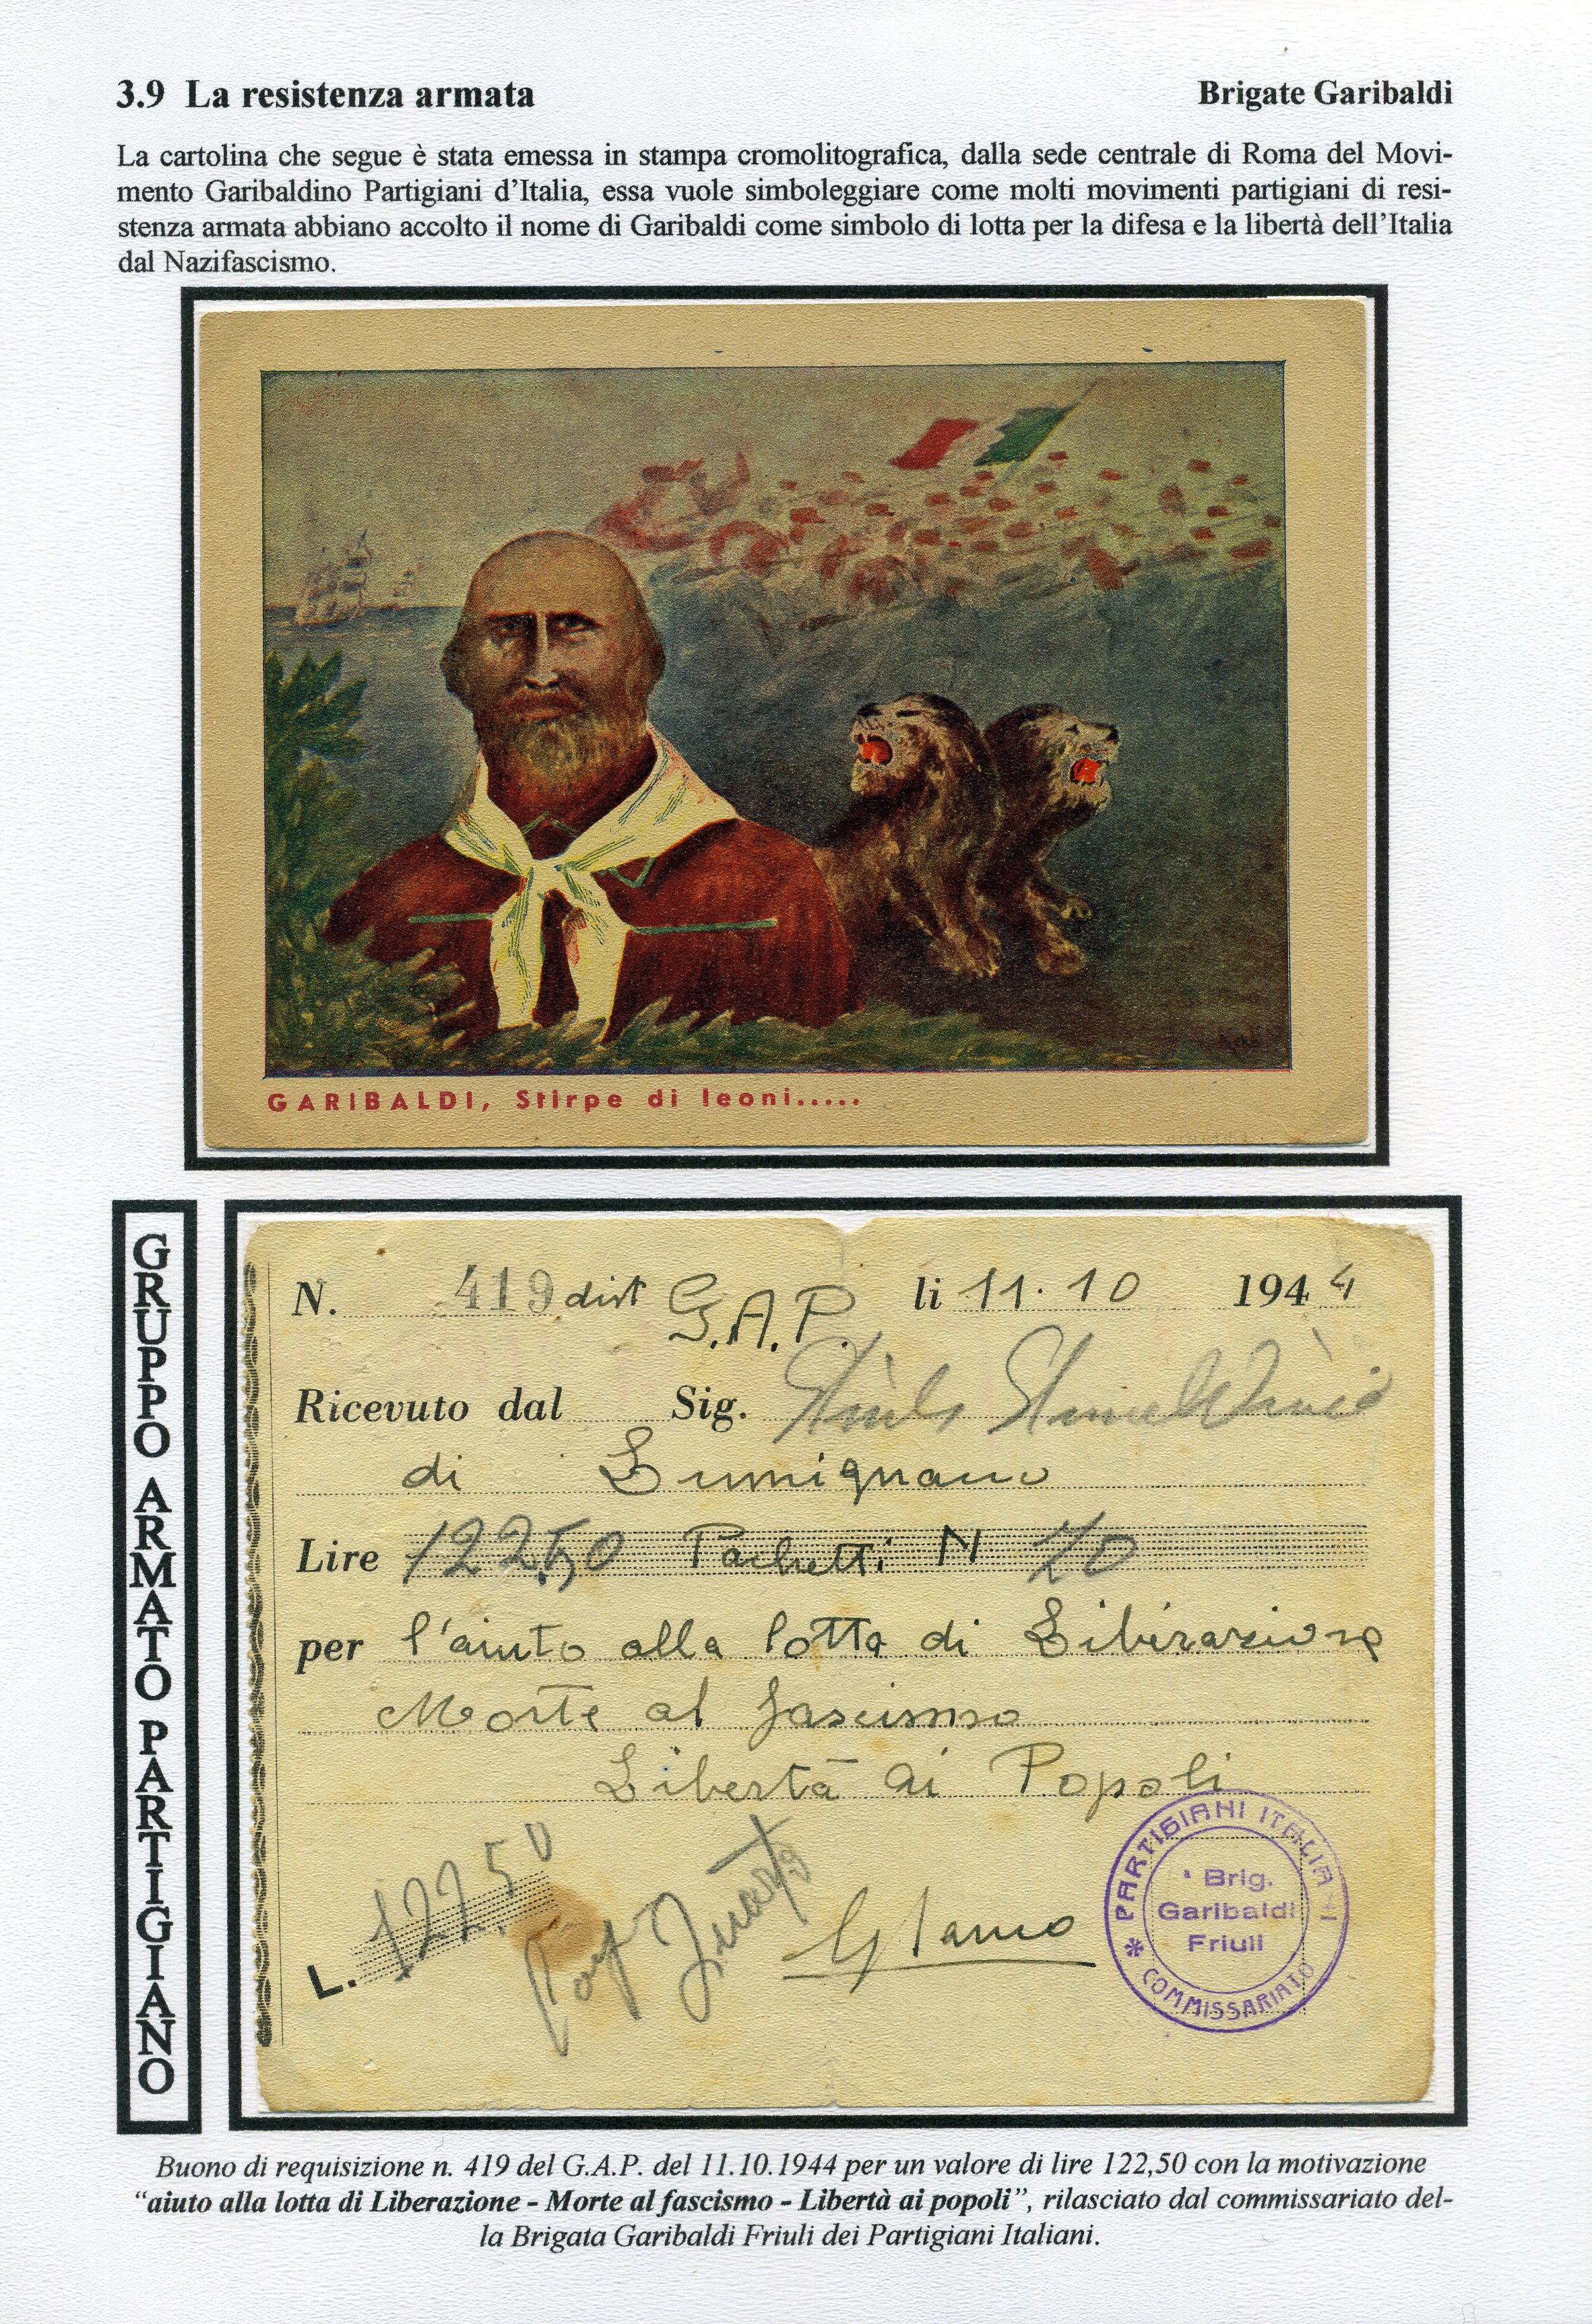 3.9 La resistenza armata
Brigate Garibaldi
La cartolina che segue è stata emessa in stampa cromolitografica, dalla sede centrale di Roma del Movi-
mento Garibaldino Partigiani d'Italia, essa vuole simboleggiare come molti movimenti partigiani di resi-
stenza armata abbiano accolto il nome di Garibaldi come simbolo di lotta per la difesa e la libertà dell'Italia
dal Nazifascismo.
GARIBALDI, Stirpe di leoni.....
GRUPPO ARMATO PARTIGIANO
N. 419 dist G.A.P. li 11.10 1944
Ricevuto dal Sig.
di Lumignano
Lire 122,50 Pachetti N 70
per l'aiuto alla lotta di Liberazione
Morte al fascismo
Libertà ai Popoli
L. 122.50
PARTIGIANI ITALIANI
Brig.
Garibaldi
Friuli
* COMMISSARIATO
Buono di requisizione n. 419 del G.A.P. del 11.10.1944 per un valore di lire 122,50 con la motivazione
"aiuto alla lotta di Liberazione - Morte al fascismo - Libertà ai popoli", rilasciato dal commissariato del-
la Brigata Garibaldi Friuli dei Partigiani Italiani.